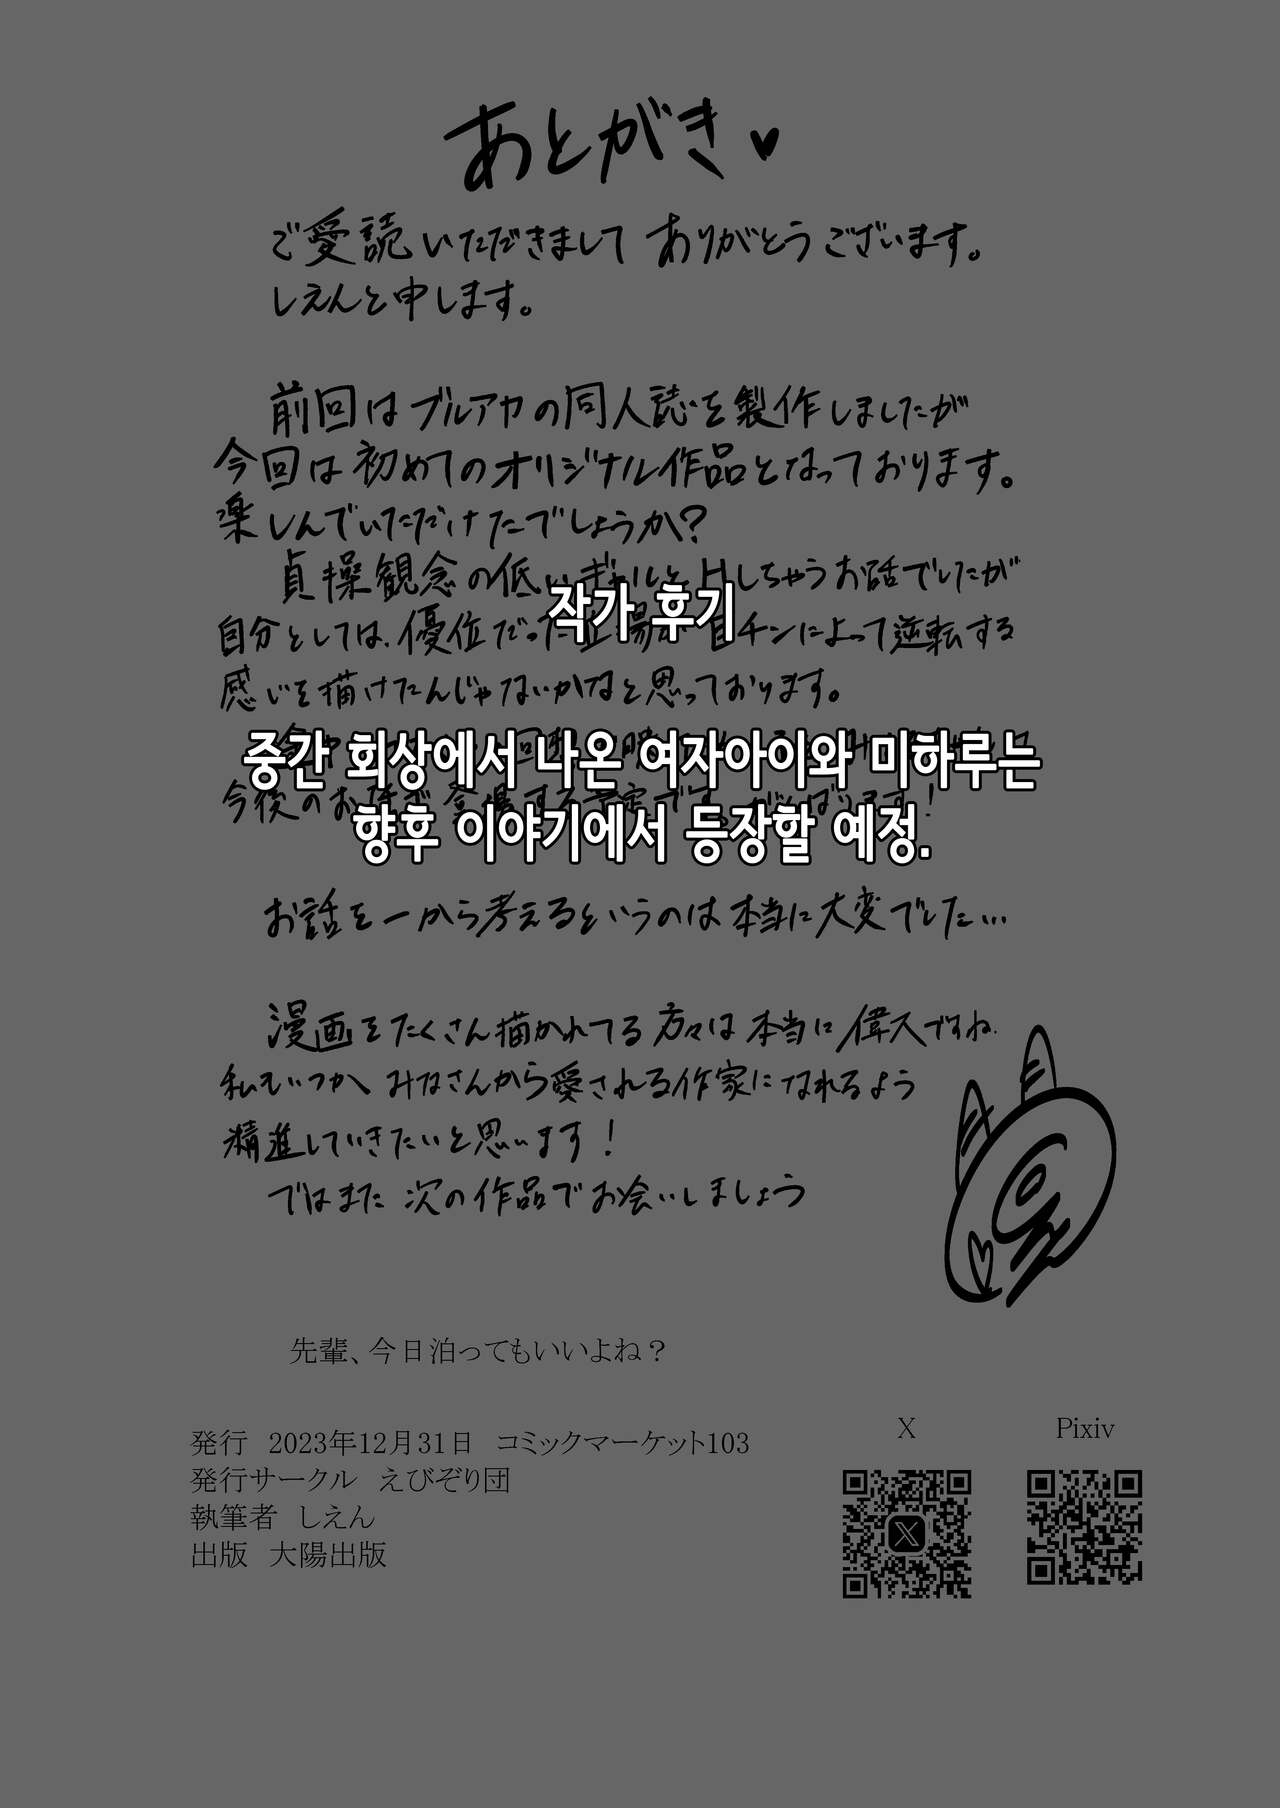 あとがき♥
ご愛読いただきまして ありがとうございます。
しえんと申します。
前回はブルアカの同人誌を製作しましたが
今回は初めてのオリジナル作品となっております。
楽しんでいただけたでしょうか?
貞操観念の低いギャルとHしちゃうお話でしたが
작가 후기
自分としては、優位だった立場が 自チンによって逆転する
感じを描けたんじゃないかなと思っております。
중간 회상에서 나온 여자아이와 미하루는
今後のお話で 登場する予定です。がんばります!
향후 이야기에서 등장할 예정.
お話を一から考えるというのは本当に大変でした…
漫画をたくさん描かれてる方々は本当に偉大ですね.
私もいつか みなさんから愛される作家になれるよう
精進していきたいと思います!
ではまた 次の作品でお会いしましょう
先輩、今日泊ってもいいよね?
発行 2023年12月31日 コミックマーケット103
発行サークル えびぞり団
執筆者 しえん
出版 大陽出版
X
Pixiv